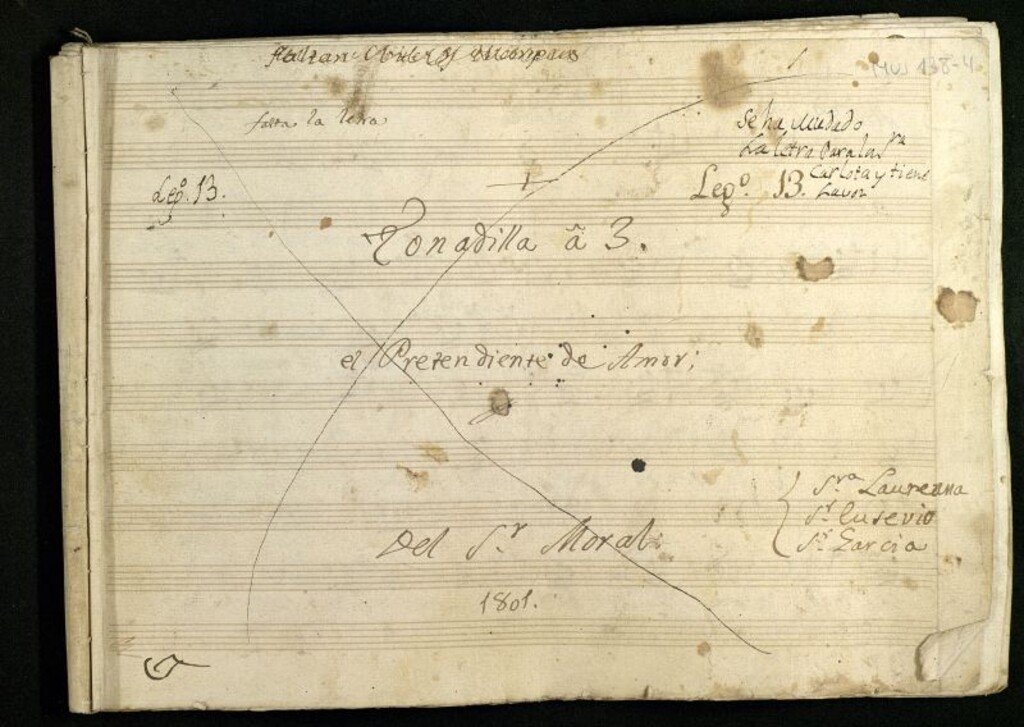 faltan Violes y
MUS 138-4
falta la letra
Se ha mudado
La letra para la Sra
Carlota y tiene
Legº. 13.
Legº. 13.
Tonadilla â 3.
el Pretendiente de Amor;
Sra Laureana
Sr Eusevio
Sr Garcia
Del Sr Moral
1801.